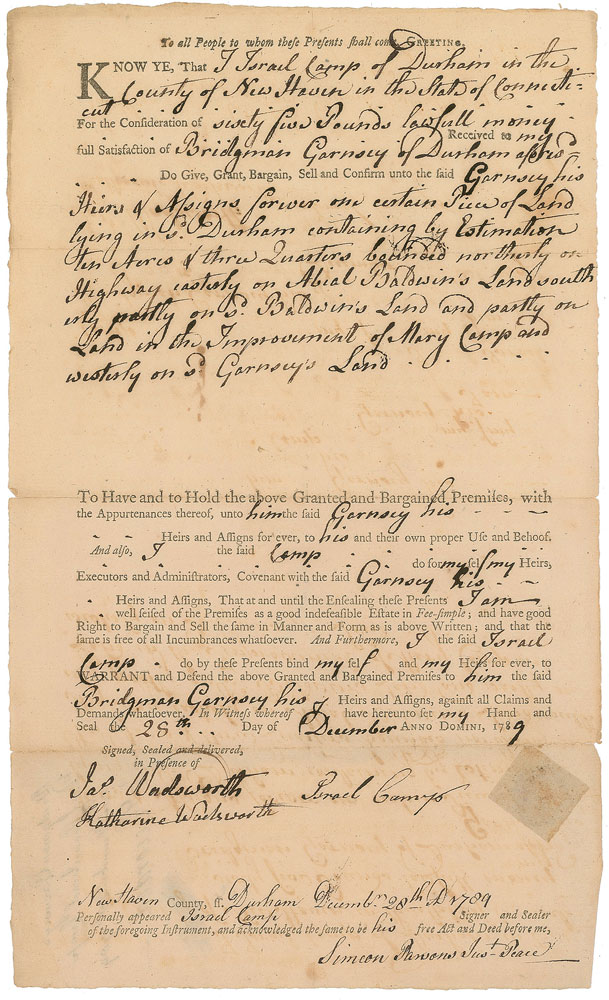 To all People to whom these Presents shall come, GREETING.
KNOW YE, That I Israel Camp of Durham in the
County of New Haven in the State of Connecti-
cut
For the Consideration of sixty five Pounds lawfull money
Received to my
full Satisfaction of Bridgman Garnsey of Durham afores.d
Do Give, Grant, Bargain, Sell and Confirm unto the said Garnsey his
Heirs & Assigns forever one certain Piece of Land
lying in s.d Durham containing by Estimation
ten Acres & three Quarters bounded northerly on
Highway easterly on Abial Baldwin's Land south
erly partly on s.d Baldwin's Land and partly on
Land in the Improvement of Mary Camp and
westerly on s.d Garnsey's Land
To Have and to Hold the above Granted and Bargained Premises, with
the Appurtenances thereof, unto him the said Garnsey his
Heirs and Assigns for ever, to his and their own proper Use and Behoof.
And also, I the said Camp do for my self my Heirs,
Executors and Administrators, Covenant with the said Garnsey his
Heirs and Assigns, That at and until the Ensealing these Presents I am
well seised of the Premises as a good indefeasible Estate in Fee-simple; and have good
Right to Bargain and Sell the same in Manner and Form as is above Written; and that the
same is free of all Incumbrances whatsoever. And Furthermore, I the said Israel
Camp do by these Presents bind my self and my Heirs for ever, to
WARRANT and Defend the above Granted and Bargained Premises to him the said
Bridgman Garnsey his Heirs and Assigns, against all Claims and
Demands whatsoever. In Witness whereof I have hereunto set my Hand and
Seal the 28th Day of December ANNO DOMINI, 1789
Signed, Sealed and delivered,
in Presence of
Jas. Wadsworth Israel Camp
Katharine Wadsworth
New Haven County, ss. Durham Decembr 28th AD 1789
Personally appeared Israel Camp Signer and Sealer
of the foregoing Instrument, and acknowledged the same to be his free Act and Deed before me,
Simeon Parsons Just. Peace